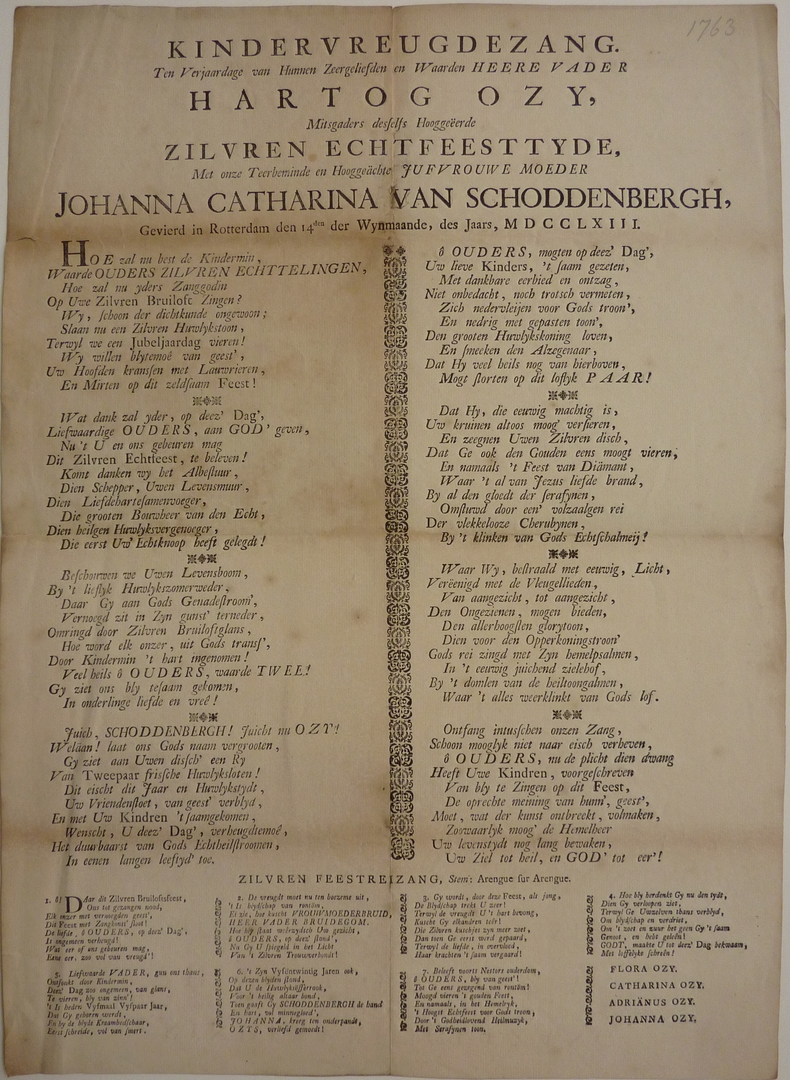 1763
KINDERVREUGDEZANG.
Ten Verjaardage van Hunnen Zeergeliefden en Waarden HEERE VADER
HARTOG OZY,
Mitsgaders desſelfs Hooggeëerde
ZILVREN ECHTFEESTTYDE,
Met onze Teerbeminde en Hooggeächte JUFVROUWE MOEDER
JOHANNA CATHARINA VAN SCHODDENBERGH,
Gevierd in Rotterdam den 14den der Wynmaande, des Jaars, MDCCLXIII.
HOE zal nu best de Kindermin,
Waarde OUDERS ZILVREN ECHTTELINGEN,
Hoe zal nu yders Zanggodin
Op Uwe Zilvren Bruiloft Zingen?
Wy, ſchoon der dichtkunde ongewoon;
Slaan nu een Zilvren Huwlykstoon,
Terwyl we een Jubeljaardag vieren!
Wy willen blytemoê van geest',
Uw Hoofden kranſen met Lauwrieren,
En Mirten op dit zeldſaam Feest!
Wat dank zal yder, op deez' Dag',
Liefwaardige OUDERS, aan GOD' geven,
Nu 't U en ons gebeuren mag
Dit Zilvren Echtfeest, te beleven!
Komt danken wy het Albeſtuur,
Dien Schepper, Uwen Levensmuur,
Dien Liefdeharteſamenvoeger,
Die grooten Bouwheer van den Echt,
Dien heilgen Huwlyksvergenoeger,
Die eerst Uw' Echtknoop heeft gelegdt!
Beſchouwen we Uwen Levensboom,
By 't lieflyk Huwlykszomerweder,
Daar Gy aan Gods Genadeſtroom',
Vernoegd zit in Zyn gunst' terneder,
Omringd door Zilvren Bruiloftglans,
Hoe word elk onzer, uit Gods transſ',
Door Kindermin 't hart ingenomen!
Veel heils ô OUDERS, waarde TWEE!
Gy ziet ons bly teſaam gekomen,
In onderlinge liefde en vreê!
Juich, SCHODDENBERGH! Juicht nu OZY!
Welaan! laat ons Gods naam vergrooten,
Gy ziet aan Uwen disch' een Ry
Van Tweepaar friſche Huwlyksloten!
Dit eischt dit Jaar en Hulwkystydt,
Uw Vriendenſtoet, van geest' verblyd,
En met Uw Kindren 't ſaamgekomen,
Wenscht, U deez' Dag', verheugdtemoê,
Het duurbaarst van Gods Echtheilſtroomen,
In eenen langen leeftyd' toe.
ô OUDERS, mogten op deez' Dag',
Uw lieve Kinders, 't ſaam gezeten,
Met dankbare eerbied en ontzag,
Niet onbedacht, noch trotsch vermeten,
Zich nedervleijen voor Gods troon',
En nedrig met gepasten toon',
Den grooten Huwlykskoning loven,
En ſmeeken den Alzegenaar,
Dat Hy veel heils nog van hierboven,
Mogt ſtorten op dit loflyk PAAR!
Dat Hy, die eeuwig machtig is,
Uw kruinen altoos moog' verſieren,
En zeegnen Uwen Zilvren disch,
Dat Ge ook den Gouden eens moogt vieren;
En namaals 't Feest van Diämant,
Waar 't al van Jezus liefde brand,
By al den gloedt der ſerafynen,
Omſtuwd door een' volzaalgen rei
Der vlekkelooze Cherubynen,
By 't klinken van Gods Echtſchalmeij!
Waar Wy, beſtraald met eeuwig, Licht,
Verëenigd met de Vleugellieden,
Van aangezicht, tot aangezicht,
Den Ongezienen, mogen bieden,
Den allerhoogſten glorytoon,
Dien voor den Opperkoningstroon'
Gods rei zingd met Zyn hemelpsalmen,
In 't eeuwig juichend zielehof,
By 't domlen van de heiltoongalmen,
Waar 't alles weerklinkt van Gods lof.
Ontfang intusſchen onzen Zang,
Schoon mooglyk niet naar eisch verheven,
ô OUDERS, nu de plicht dien dwang
Heeft Uwe Kindren, voorgeſchreven
Van bly te Zingen op dit Feest,
De oprechte meining van hunn', geest',
Moet, wat der kunst ontbreekt, volmaken,
Zoowaarlyk moog' de Hemelheer
Uw levenstydt nog lang bewaken,
Uw Ziel tot heil, en GOD' tot eer'!
ZILVREN FEESTREIZANG, Stem: Arengue ſur Arengue.
1. Daar dit Zilvren Bruiloftsfeest,
Ons tot gezangen nood,
Elk onzer met vernoegden geest',
Dit Feest met Zanglust ſloot!
De liefde, ô OUDERS, op deez' Dag',
Is ongemeen verheugd!
Wat eer of ons gebeuren mag,
Eene eer. zoo vol van vreugd'!
2. De vreugdt moet nu ten boezems uit,
't Is blydſchap van rontöm,
Ei zie, hoe kuscht VROUWMOEDERBRUID,
HEER VADER BRUIDEGOM.
ô OUDERS, op deez' ſtond',
Nu Gy U ſpiegeld in het Licht
Van 't Zilvren Trouwverbondt!
3. Gy wordt, door deez' Feest, als jong,
De Blydſchap trekt U zeer!
Terwyl de vreugdt U 't hart bevong,
Kuscht Gy elkandren teêr!
Die Zilvren kuschjes zyn meer zoet,
Dan toen Ge eerst werd gepaard,
Terwyl de liefde, in overvloed,
Haar krachten 't ſaam vergaard!
4. Hoe bly herdenkt Gy nu den tydt,
Dien Gy verloopen ziet,
Terwyl Ge Uwzelven thans verblyd,
Om blydſchap en verdriet,
Om 't zoet en zuur het geen Gy 't ſaam
Genoot, en hebt geleên!
GODT, maakte U tot deez' Dag bekwaam,
5. Liefwaarde VADER, gun ons thans,
Ontfonkt door Kindermin,
Deez' Dag zoo ongemeen, van glans,
Te vieren, bly van zinn'!
't Is heden Vyfmaal Vyfpaar Jaar,
Dat Gy geboren werdt,
En by de blyde Kraambedſchaar,
Eerst ſchreide, vol van ſmert.
6. 't Zyn Vyfentwintig Jaren ook,
Op dezen blyden ſtond,
Toen gaaft Gy SCHODDENBERGH de hand
En hart, vol minnegloed',
JOHANNA, kreeg ten onderpandt,
OZYS, verliefd gemoedt!
7. Beleeft voorts Nestors ouderdom,
ô OUDERS, bly van geest'!
Tot Ge eens gezegend van rontöm!
Moogd vieren 't gouden Feest,
En namaals, in het Hemelryk,
't Hoogst Echtfeest voor Gods troon,
Door 't Godheidlovend Heilmuzyk,
Met Serafynen toon.
FLORA OZY.
CATHARINA OZY.
ADRIÄNUS OZY.
JOHANNA OZY.